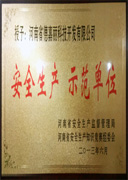 授予：河南省德嘉丽科技开发有限公司
安全生产 示范单位
河南省安全生产监督管理局
河南省安全生产知识竞赛组委会
二〇一三年六月